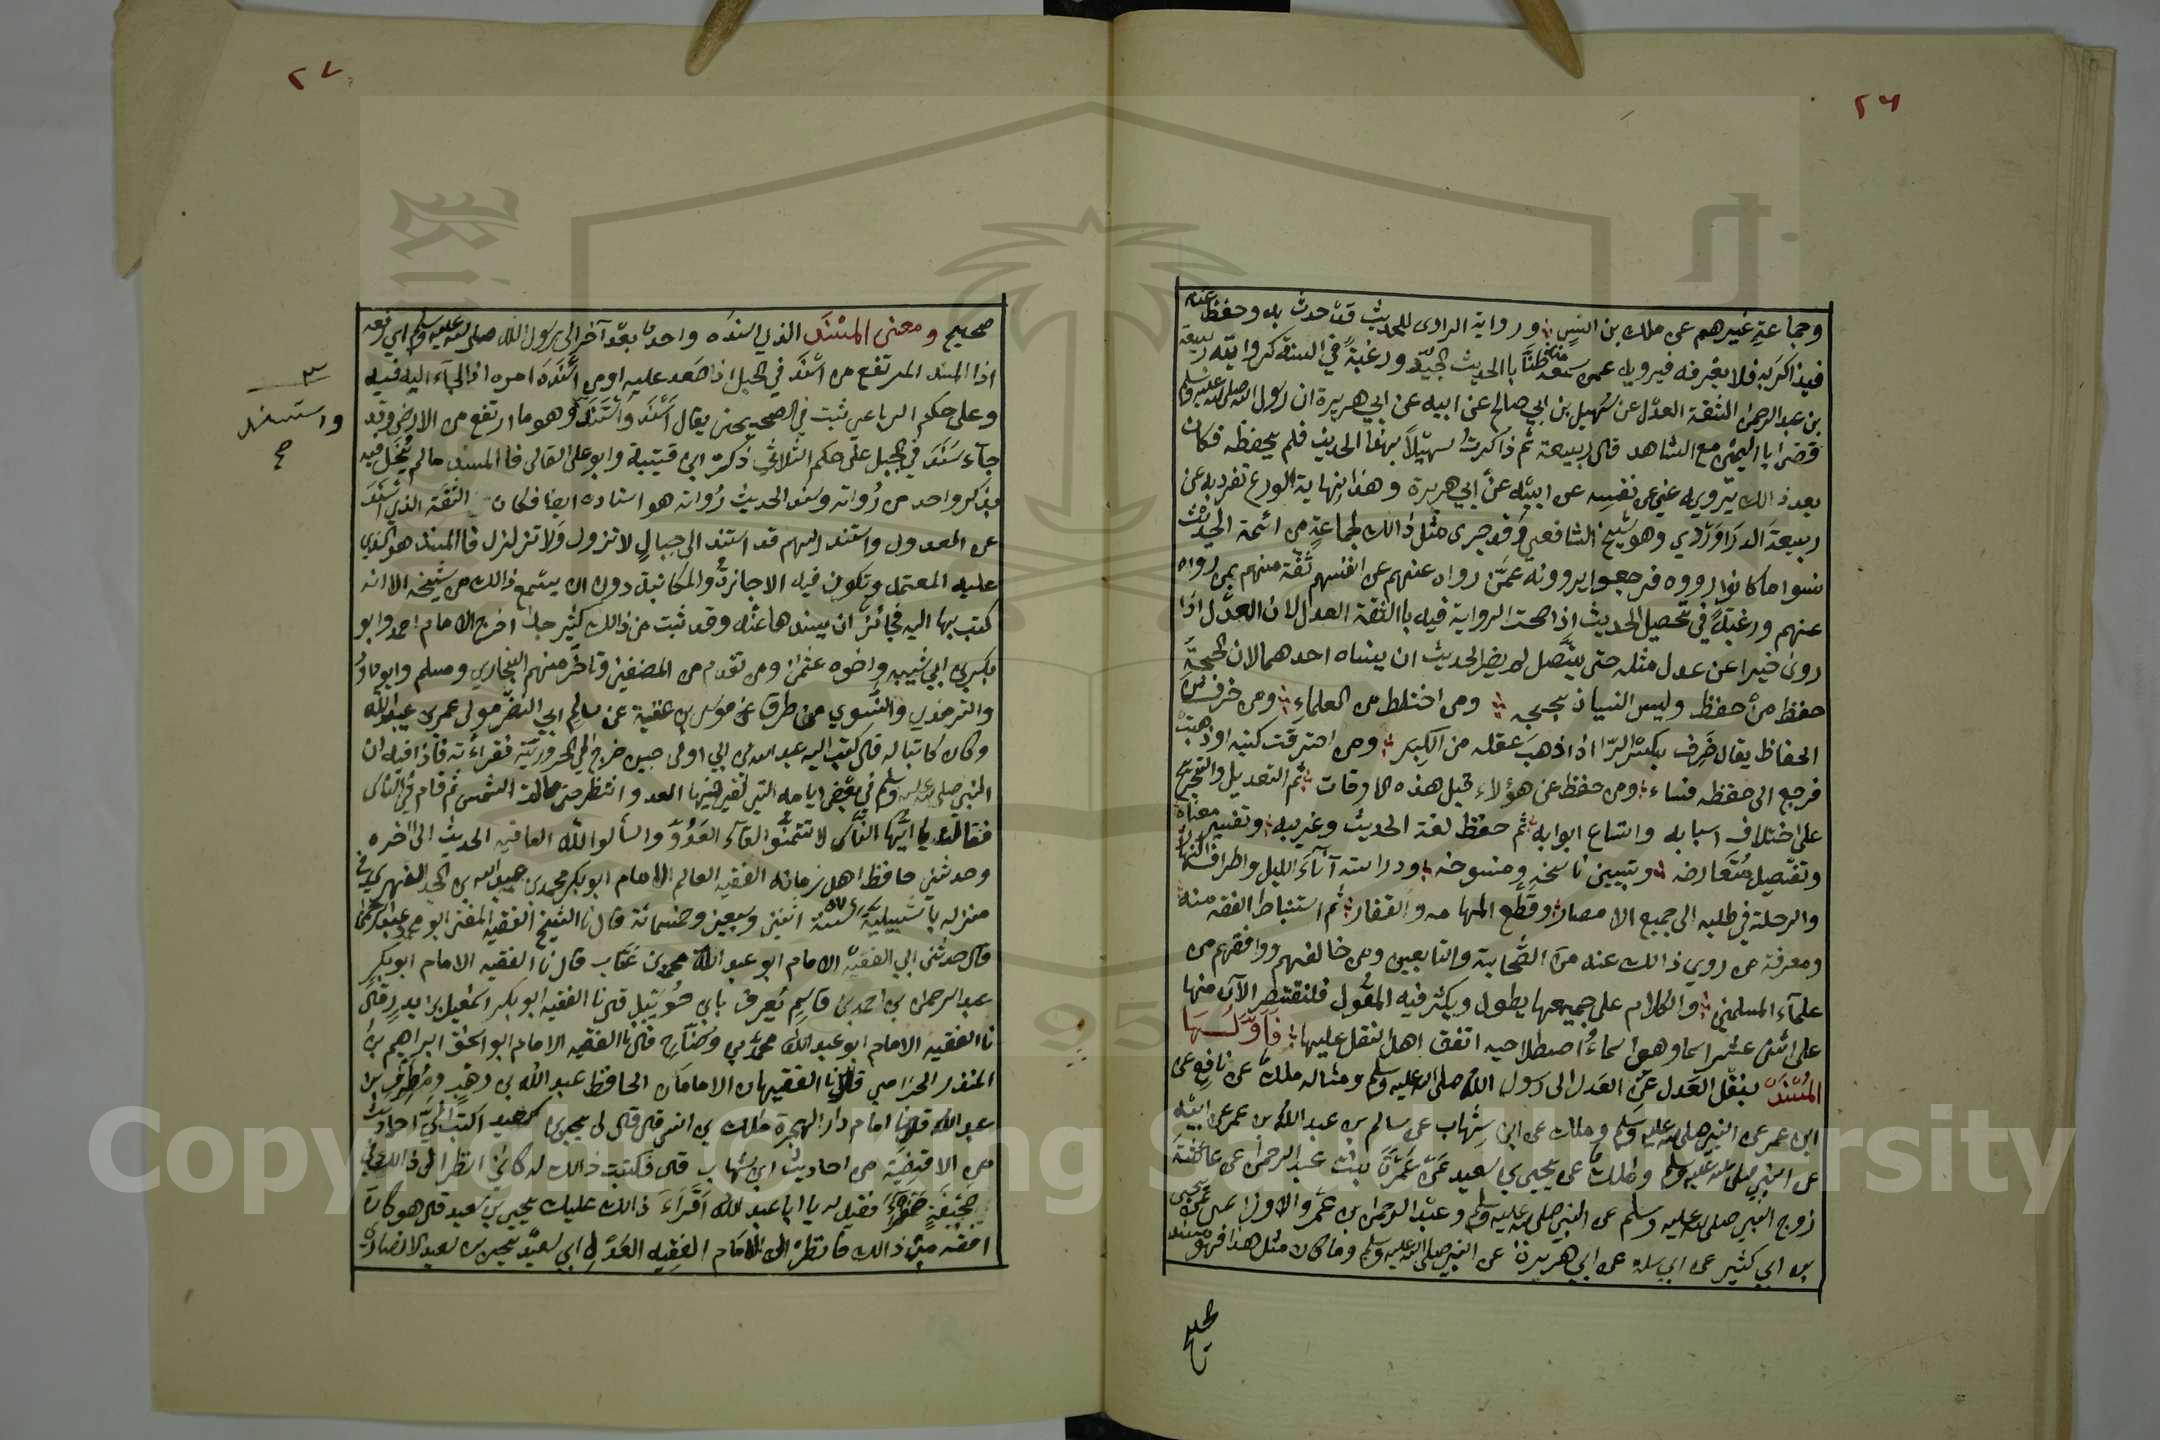 ٢٦
وجماعة غيرهم عن ملك بن انس ورواية الراوى للحديث قد حدث به وحفظ عنه
فيذاكر به فلا يعرفه فيرويه عمن سمعه منه حفظا بالحديث الجيد ورغبة في السنة كرواية ربيعة
بن عبد الرحمن الثقة العدل عن سهيل بن ابي صالح عن ابيه عن ابي هريرة ان رسول الله صلى الله عليه وسلم
قضى با اليمين مع الشاهد قال ربيعة ثم ذاكرت سهيلا بهذا الحديث فلم يحفظه فكان
بعد ذالك يرويه عني عن نفسه عن ابيه عن ابي هريرة وهذا نهاية الورع تفرد به عن
ربيعة الدراوردي وهو شيخ الشافعي وقد جرى مثل ذالك لجماعة من ائمة الحديث
نسوا ما كانوا رووه فرجعوا يروونه عمن رواه عنهم عن انفسهم ثقة منهم بمن رواه
عنهم ورغبة في تحصيل الحديث اذا صحت الرواية فيه با الثقة العدل لان العدل اذا
روى خبرا عن عدل مثله حتى يتصل لم يضر الحديث ان ينساه احدهما لان الحجة
حفظ من حفظ وليس النسيان بحجة ومن اختلط من العلماء ومن خرف من
الحفاظ يقال خرف بكسر الرا اذا ذهب عقله من الكبر ومن احترقت كتبه او ذهبت
فرجع الى حفظه فساء ومن حفظ عن هؤلاء قبل هذه الاوقات ثم التعديل والتجريح
على اختلاف اسبابه واتساع ابوابه ثم حفظ لغة الحديث وغريبه وتفسير معناه
وتفصيل متعارضه وتبيين ناسخه ومنسوخه ودراسته آناء الليل واطراف النهار
والرحلة في طلبه الى جميع الامصار وقطع المهامه والقفار ثم استنباط الفقه منه
ومعرفة من روي ذالك عنه من الصحابة والتابعين ومن خالفهم ووافقهم من
علماء المسلمين والكلام على جميعها يطول ويكثر فيه المقول فلنقتصر الآن منها
على اثنى عشر اسما وهي اسماء اصطلاحيه اتفق اهل النقل عليها فاولها
المسند بنقل العدل عن العدل الى رسول الله صلى الله عليه وسلم ومثاله ملك عن نافع عن
ابن عمر عن النبي صلى الله عليه وسلم وملك عن ابن شهاب عن سالم بن عبد الله بن عمر عن ابيه
عن النبي صلى الله عليه وسلم وملك عن يحيى بن سعيد عن عمرة بنت عبد الرحمن عن عائشة
زوج النبي صلى الله عليه وسلم عن النبي صلى الله عليه وسلم وعبد الرحمن بن عمرو الاوزاعي عن يحيى
بن ابي كثير عن ابي سلمة عن ابي هريرة عن النبي صلى الله عليه وسلم وما كان مثل هذا فهو مسند
صحيح
٢٧
صحيح ومعنى المسند الذي اسنده واحد بعد آخر الى رسول الله صلى الله عليه وسلم اي رفعه
اذ المسند المرتفع من اسند في الجبل اذا صعد عليه او من اسنده امره اذا الجاء اليه فيه
وعلى حكم الرباعي ثبت في الصحيحين يقال اسند واستند وهو ما ارتفع من الارض وقد
جاء سند في الجبل على حكم الثلاثي ذكره ابن قتيبة وابو على القالى فا المسند ما لم يخل فيه
بذكر واحد من رواته وسند الحديث رواته هو اسناده ايضا فكان الثقة الذي اسند
عن العدول واستند اليهم قد استند الى جبال لا تزول ولا تزلزل فا المسند هو الذي
عليه المعتمل وتكون فيه الاجازة والمكاتبة دون ان يسمع ذالك من شيخه الا انه
كتب بها اليه فجائز ان يسندها عنه وقد ثبت من ذالك كثير جدا اخرج الامام احمد وابو
بكر بن ابي شيبه واخوه عثمن ومن تقدم من المصنفين وتاخر منهم البخاري ومسلم وابو داود
والترمذي والنسوي من طرق عن موسى بن عقبة عن سالم ابي النضر مولى عمر بن عبيد الله
وكان كاتبا له قال كتب اليه عبد الله بن ابي اوفى حين خرج الى الحرورية فقراءته فاذا فيه ان
النبي صلى الله عليه وسلم في بعض ايامه التي لقى فيها العدو انتظر حتى مالت الشمس ثم قام في الناس
فقال يا ايها الناس لا تتمنوا لقاء العدو واسألوا الله العافيه الحديث الى اخره
وحدثني حافظ اهل زمانه الفقيه العالم الامام ابو بكر محمد بن عبد الله بن الجد الفهري في
منزله باشبيلية سنة اثنين وسبعين وخمسمائة قال نا الشيخ الفقيه المفتي ابو محمد عبد الرحمن
قال حدثني ابي الفقيه الامام ابو عبد الله محمد بن عتاب قال نا الفقيه الامام ابو بكر
عبد الرحمن بن احمد بن قاسم يعرف بابن حوبيل قال نا الفقيه ابو بكر اسمعيل بن بدر قال
نا الفقيه الامام ابو عبد الله محمد بن وضاح قال نا الفقيه الامام ابو اسحق ابراهيم بن
المنذر الحزامي قال نا الفقيهان الامامان الحافظ عبد الله بن وهب ومطرف بن
عبد الله قالا نا امام دار الهجرة ملك بن انس قال قال لى يحيى بن سعيد اكتب الي احاديث
من الاقضية من احاديث ابن شهاب قال فكتبت ذالك له كاني انظر الى ذالك في
صحيفة صفراء فقيل له يا ابا عبد الله اقراء ذالك عليك يحيى بن سعيد قال هو كان
افقه من ذالك فانظر الى الامام الفقيه العدل ابي سعيد يحيى بن سعيد الانصاري
واستسند